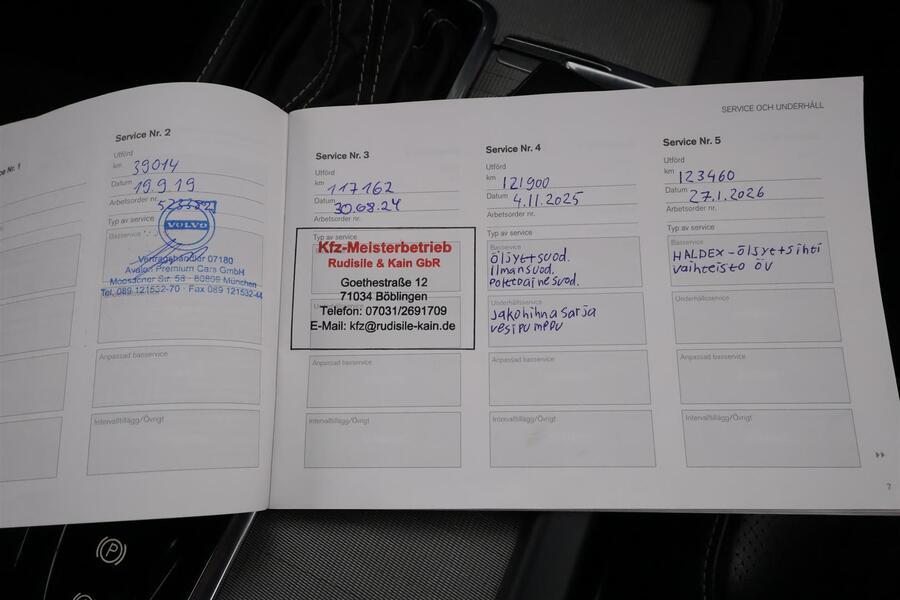 SERVICE OCH UNDERHÅLL
Service Nr. 2
Utförd
km 39014
Datum 19.9.19
Arbetsorder nr.
Typ av service
Basservice
VOLVO
Vertragshändler 07180
Avalon Premium Cars GmbH
Moosacher Str. 58 · 80809 München
Tel. 089 121532-70 · Fax 089 121532-44
Anpassad basservice
Intervalltillägg/Övrigt
Service Nr. 3
Utförd
km 117162
Datum 30.08.24
Arbetsorder nr.
Typ av service
Kfz-Meisterbetrieb
Rudisile & Kain GbR
Goethestraße 12
71034 Böblingen
Telefon: 07031/2691709
E-Mail: kfz@rudisile-kain.de
Anpassad basservice
Intervalltillägg/Övrigt
Service Nr. 4
Utförd
km 121900
Datum 4.11.2025
Arbetsorder nr.
Typ av service
Basservice
Öljyt+suod.
Ilmansuod.
Underhållsservice
Jakohihnasarja
vesipumppu
Anpassad basservice
Intervalltillägg/Övrigt
Service Nr. 5
Utförd
km 123460
Datum 27.1.2026
Arbetsorder nr.
Typ av service
Basservice
HALDEX-öljyt+sihti
vaihteisto öv
Underhållsservice
Anpassad basservice
Intervalltillägg/Övrigt
7